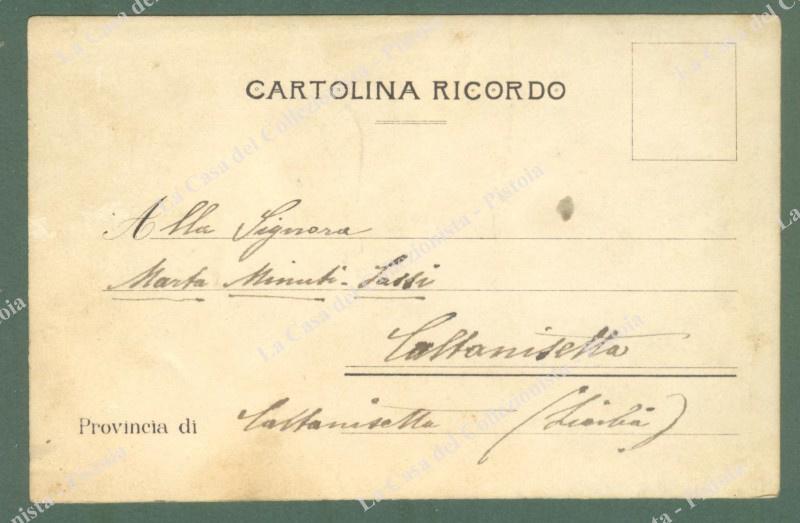 CARTOLINA RICORDO
Alla Signora
Marta Minuti-Tassi
Caltanisetta
Provincia di Caltanisetta (Sicilia)
La Casa del Collezionista - Pistoia